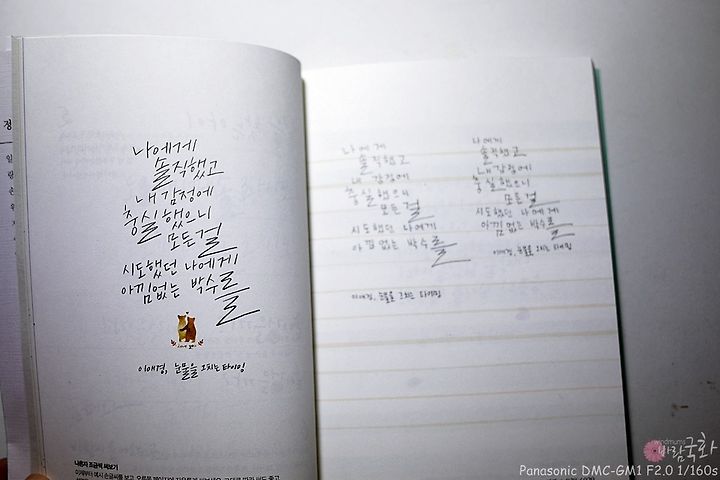 나에게
솔직했고
내 감정에
충실했으니
모든 걸
시도했던 나에게
아낌없는 박수를
이애경, 눈물을 그치는 타이밍
나에게
솔직했고
내 감정에
충실했으니
모든 걸
시도했던 나에게
아낌없는 박수를
이애경, 눈물을 그치는 타이밍
나에게
솔직했고
내 감정에
충실했으니
모든 걸
시도했던 나에게
아낌없는 박수를
이애경, 눈물을 그치는 타이밍
나혼자 조금씩 써보기
windmums
바람국화
Panasonic DMC-GM1 F2.0 1/160s